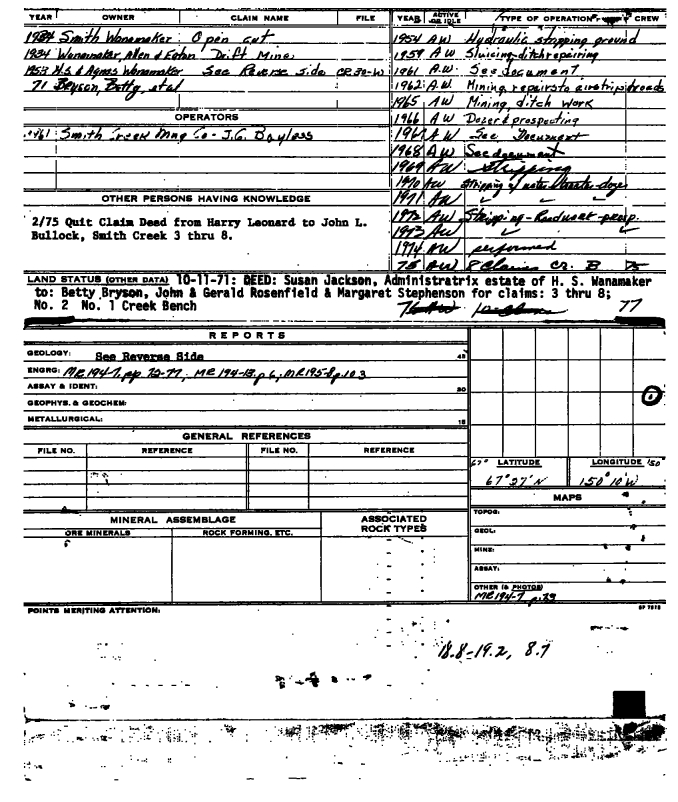 YEAR OWNER CLAIM NAME FILE
1934 Smith Wanamaker Open cut
1934 Wanamaker, Allen & Eaton Drift Mine
1953 H.S. & Agnes Wanamaker See Reverse Side CR 30-W
71 Bryson, Betty, etal
OPERATORS
1961 Smith Creek Mng Co - J.G. Bayless
OTHER PERSONS HAVING KNOWLEDGE
2/75 Quit Claim Dead from Harry Leonard to John L.
Bullock, Smith Creek 3 thru 8.
YEAR ACTIVE OR IDLE TYPE OF OPERATION CREW
1954 AW Hydraulic stripping ground
1959 AW Sluicing-ditch repairing
1961 A.W. See Document
1962 A.W. Mining, repairs to airstrip & roads
1965 AW Mining, ditch work
1966 AW Dozer & prospecting
1967 AW See Document
1968 AW See document
1969 AW stripping
1970 AW stripping w/ water dozer
1971 AW
1972 AW Stripping-
1973 AW
1974 AW performed
75 AW 8 Claims CR. B 75
LAND STATUS (OTHER DATA) 10-11-71: DEED: Susan Jackson, Administratrix estate of H. S. Wanamaker
to: Betty Bryson, John & Gerald Rosenfield & Margaret Stephenson for claims: 3 thru 8;
No. 2 No. 1 Creek Bench 76 AW 77
REPORTS
GEOLOGY: See Reverse Side 45
ENGRG: MR 194-7, pp 72-77; MR 194-13, p 6; MR 195-8 p 103
ASSAY & IDENT: 30
GEOPHYS. & GEOCHEM:
METALLURGICAL: 15
GENERAL REFERENCES
FILE NO. REFERENCE FILE NO. REFERENCE
67° LATITUDE LONGITUDE 150°
67°27'N 150°10'W
MAPS
TOPOG:
GEOL:
MINE:
ASSAY:
OTHER (& PHOTOS)
MR 194-7 p. 29
MINERAL ASSEMBLAGE ASSOCIATED ROCK TYPES
ORE MINERALS ROCK FORMING, ETC.
POINTS MERITING ATTENTION:
18.8-19.2, 8.7